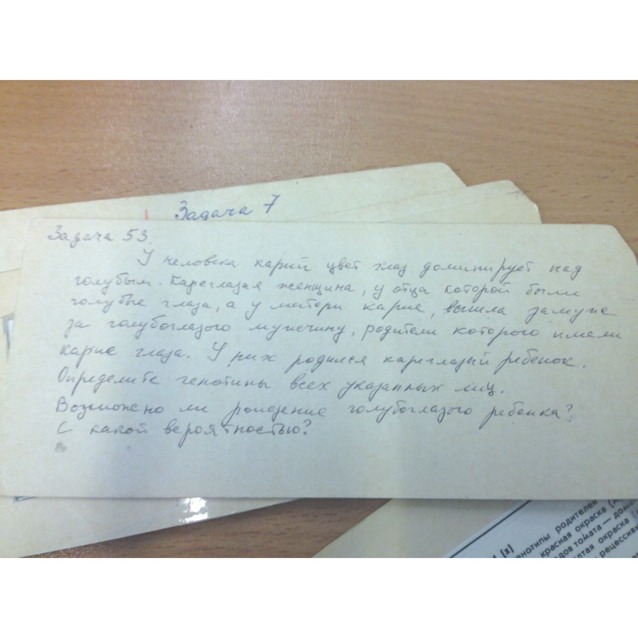 Задача 7
Задача 53.
У человека карий цвет глаз доминирует над
голубым. Кареглазая женщина, у отца которой были
голубые глаза, а у матери карие, вышла замуж
за голубоглазого мужчину, родители которого имели
карие глаза. У них родился кареглазый ребенок.
Определите генотипы всех указанных лиц.
Возможно ли рождение голубоглазого ребенка?
С какой вероятностью?
(я)
нотипы родителей
красная окраска
дов томата — до
тая окраска
рецессив